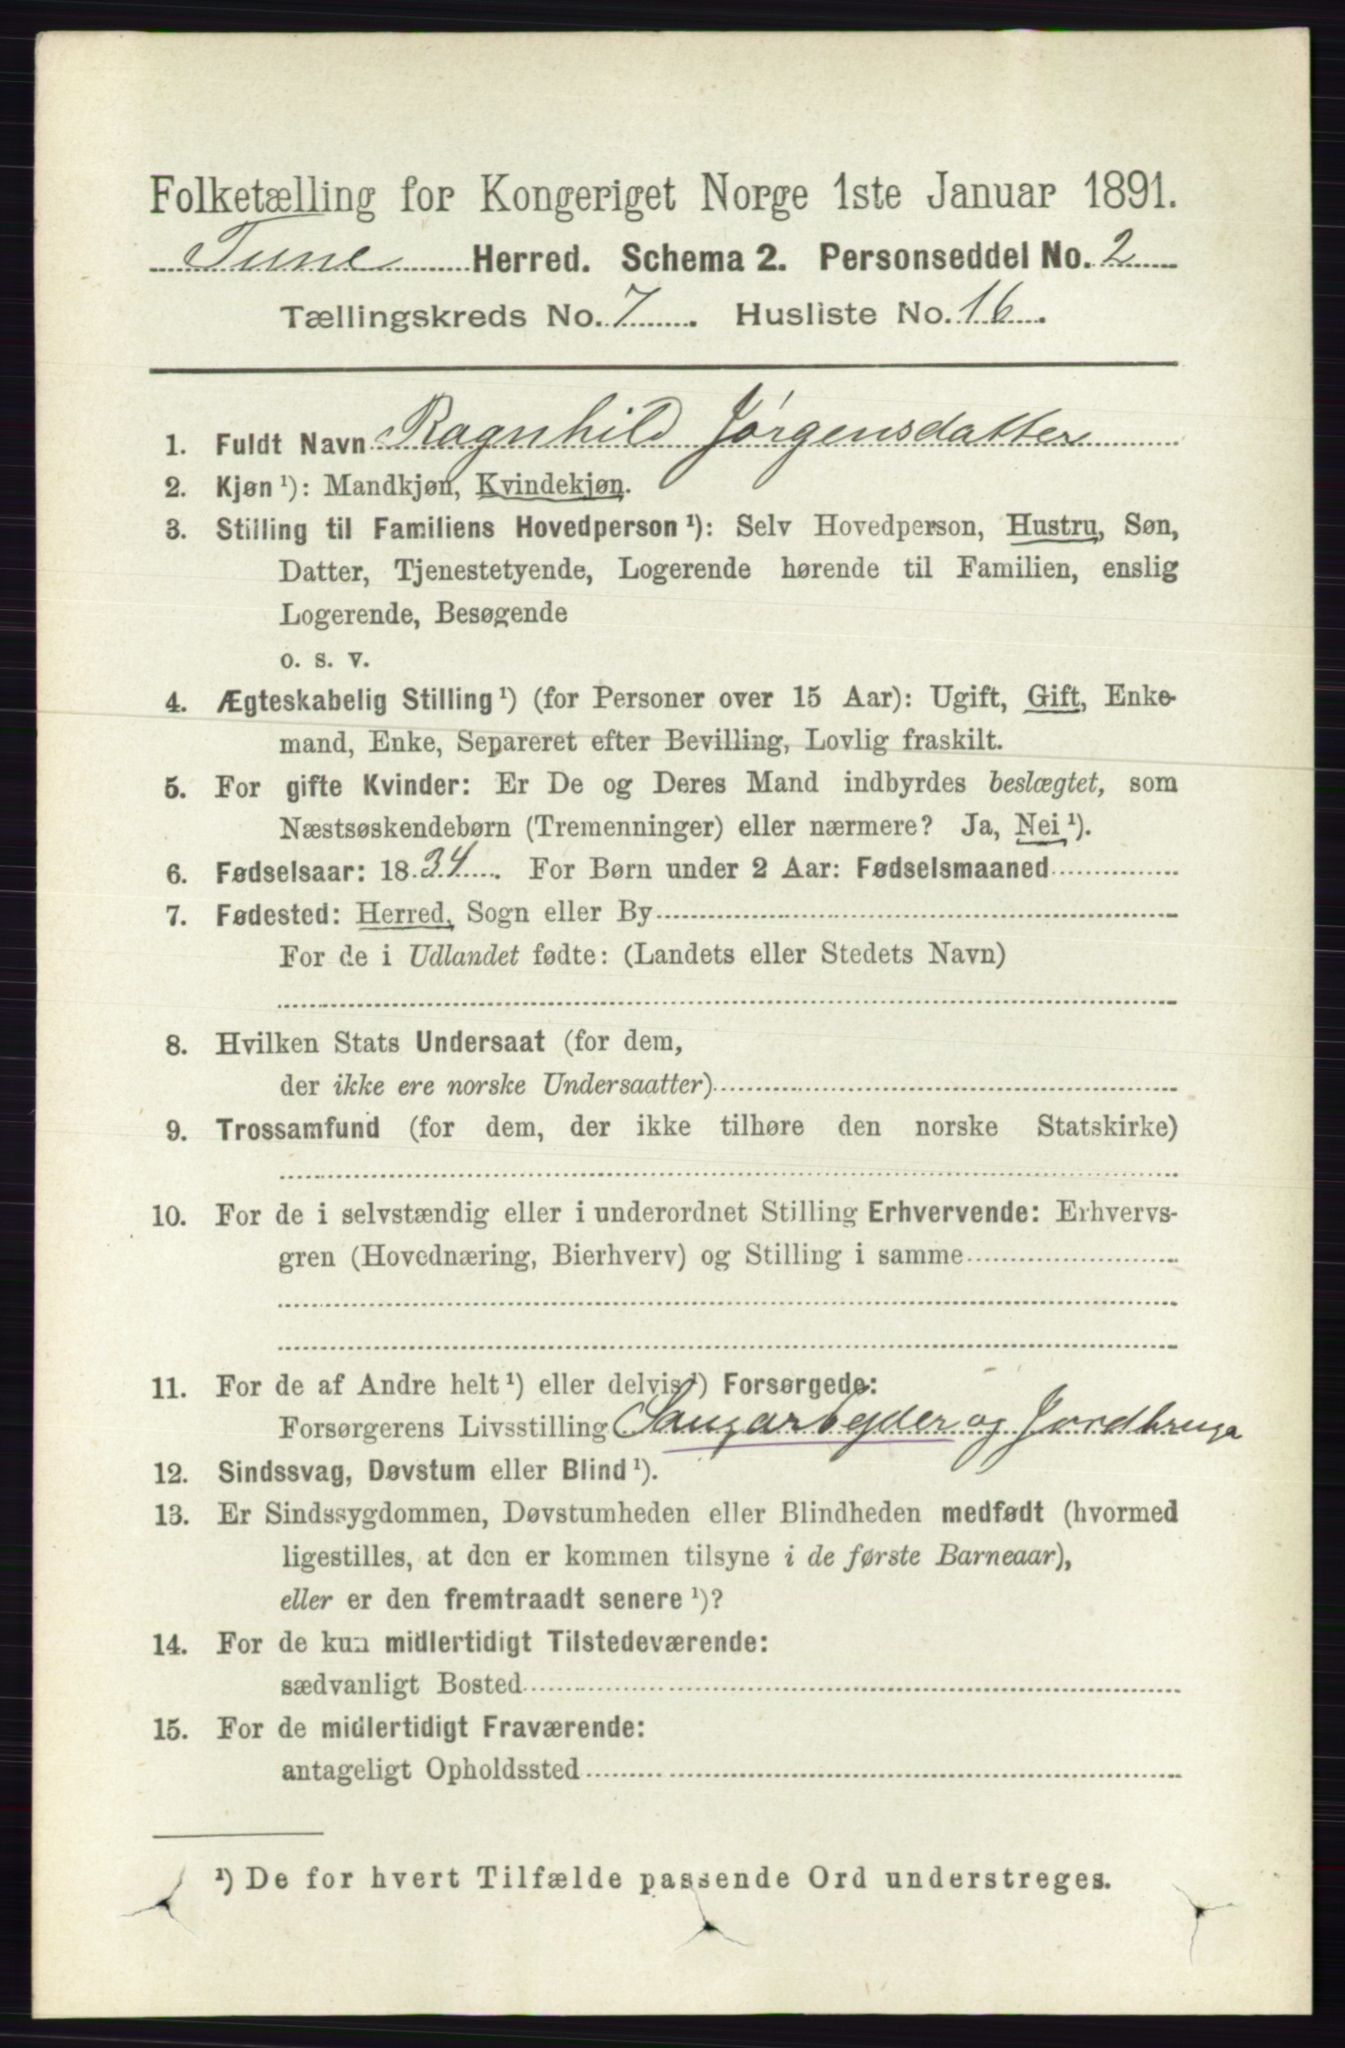 Folketælling for Kongeriget Norge 1ste Januar 1891.
Tune Herred. Schema 2. Personseddel No. 2
Tællingskreds No. 7. Husliste No. 16.
1. Fuldt Navn Ragnhild Jørgensdatter
2. Kjøn ¹): Mandkjøn, Kvindekjøn.
3. Stilling til Familiens Hovedperson ¹): Selv Hovedperson, Hustru, Søn,
Datter, Tjenestetyende, Logerende hørende til Familien, enslig
Logerende, Besøgende
o. s. v.
4. Ægteskabelig Stilling ¹) (for Personer over 15 Aar): Ugift, Gift, Enke-
mand, Enke, Separeret efter Bevilling, Lovlig fraskilt.
5. For gifte Kvinder: Er De og Deres Mand indbyrdes beslægtet, som
Næstsøskendebørn (Tremenninger) eller nærmere? Ja, Nei ¹).
6. Fødselsaar: 1834. For Børn under 2 Aar: Fødselsmaaned
7. Fødested: Herred, Sogn eller By
For de i Udlandet fødte: (Landets eller Stedets Navn)
8. Hvilken Stats Undersaat (for dem,
der ikke ere norske Undersaatter)
9. Trossamfund (for dem, der ikke tilhøre den norske Statskirke)
10. For de i selvstændig eller i underordnet Stilling Erhvervende: Erhvervs-
gren (Hovednæring, Bierhverv) og Stilling i samme
11. For de af Andre helt ¹) eller delvis ¹) Forsørgede:
Forsørgerens Livsstilling Saugarbejder og Jordbruga
12. Sindssvag, Døvstum eller Blind ¹).
13. Er Sindssygdommen, Døvstumheden eller Blindheden medfødt (hvormed
ligestilles, at den er kommen tilsyne i de første Barneaar),
eller er den fremtraadt senere ¹)?
14. For de kun midlertidigt Tilstedeværende:
sædvanligt Bosted
15. For de midlertidigt Fraværende:
antageligt Opholdssted
¹) De for hvert Tilfælde passende Ord understreges.